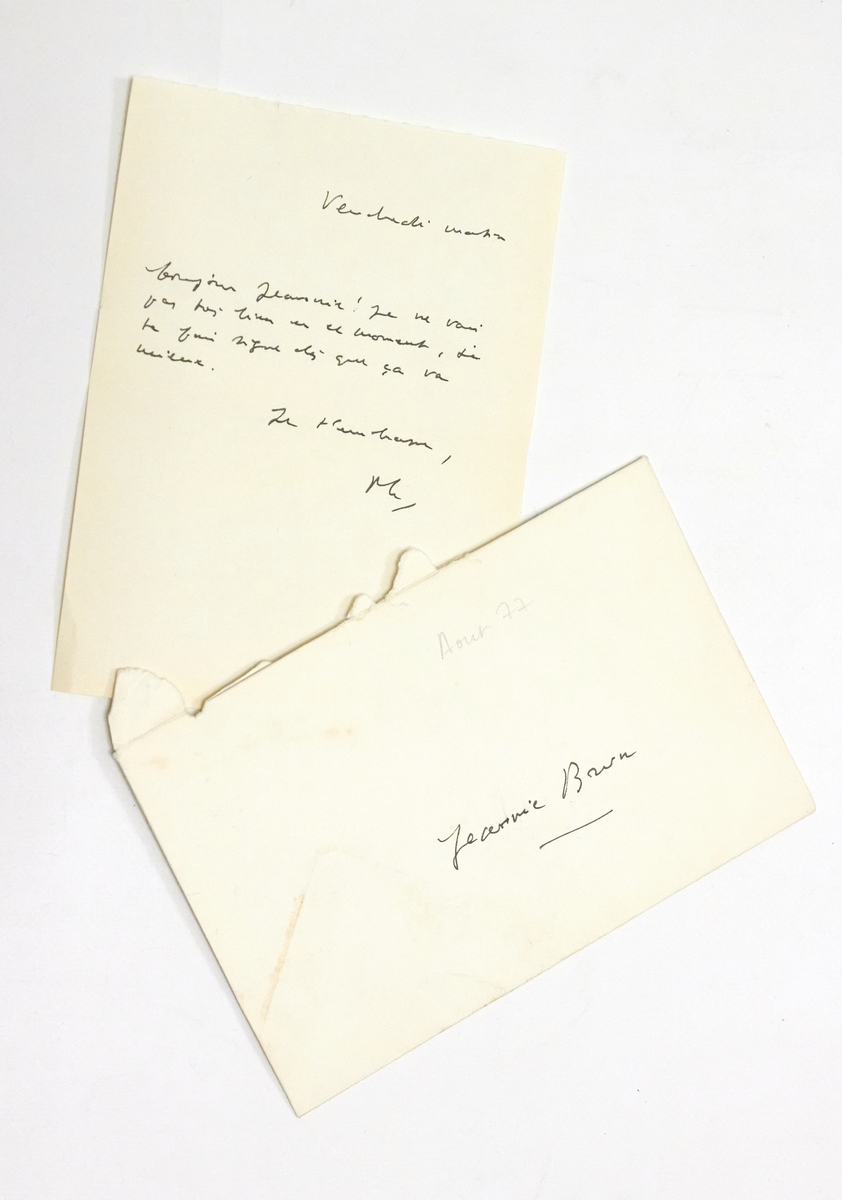 Vendredi matin
bonjour Jeannie! Je ne vais
pas très bien en ce moment, je
te fais signe dès que ça va
mieux.
Je t'embrasse,
Aout 77
Jeannie Brun